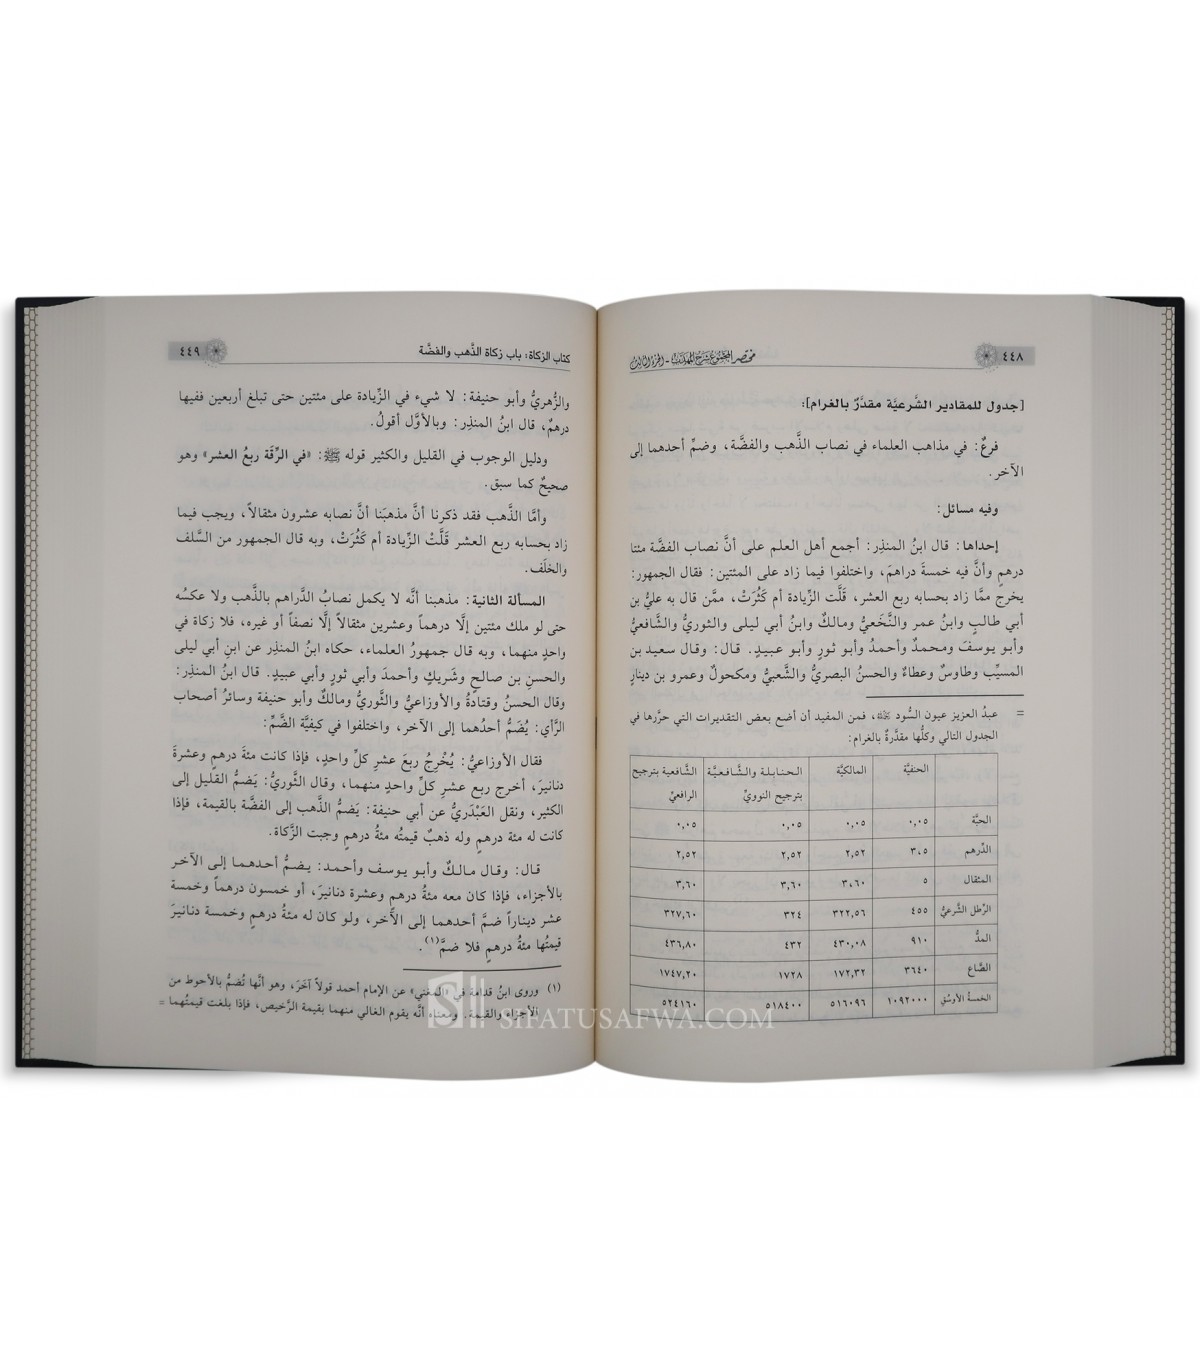 ٤٤٨
مختصر المجموع شرح المهذب - الجزء الثالث
[جدول للمقادير الشَّرعيَّة مقدَّرٌ بالغرام]:
فرعٌ: في مذاهب العلماء في نصاب الذَّهب والفضَّة، وضمِّ أحدهما إلى
الآخر.
وفيه مسائل:
إحداها: قال ابنُ المنذِر: أجمع أهل العلم على أنَّ نصاب الفضَّة مئتا
درهمٍ وأنَّ فيه خمسةَ دراهمَ، واختلفوا فيما زاد على المئتين: فقال الجمهور:
يخرج ممَّا زاد بحسابه ربع العشر، قَلَّت الزِّيادة أم كَثُرَتْ، ممَّن قال به عليُّ بن
أبي طالبٍ وابنُ عمر والنَّخَعيُّ ومالكٌ وابنُ أبي ليلى والثوريُّ والشَّافعيُّ
وأبو يوسفَ ومحمدٌ وأحمدُ وأبو ثورٍ وأبو عبيدٍ. قال: وقال سعيد بن
المسيِّب وطاوسٌ وعطاءٌ والحسنُ البصريُّ والشَّعبيُّ ومكحولٌ وعمرو بن دينارٍ
= عبدُ العزيز عيون السُّود ﵀، فمن المفيد أن أضع بعض التقديرات التي حرَّرها في
الجدول التالي وكلُّها مقدَّرةٌ بالغرام:
الحنفيَّة المالكيَّة الحنابلة والشَّافعيَّة بترجيح النوويِّ الشَّافعية بترجيح الرافعيِّ
الحبَّة ٠,٠٥ ٠,٠٥ ٠,٠٥ ٠,٠٥
الدِّرهم ٣,٥ ٢,٥٢ ٢,٥٢ ٢,٥٢
المثقال ٥ ٣,٦٠ ٣,٦٠ ٣,٦٠
الرِّطل الشَّرعيُّ ٤٥٥ ٣٢٢,٥٦ ٣٢٤ ٣٢٧,٦٠
المدُّ ٩١٠ ٤٣٠,٠٨ ٤٣٢ ٤٣٦,٨٠
الصَّاع ٣٦٤٠ ١٧٢,٣٢ ١٧٢٨ ١٧٤٧,٢٠
الخمسةُ الأوسُقِ ١٠٩٢٠٠٠ ٥١٦٠٩٦ ٥١٨٤٠٠ ٥٢٤١٦٠
كتاب الزكاة: باب زكاة الذَّهب والفضَّة
٤٤٩
والزُّهريُّ وأبو حنيفة: لا شيء في الزِّيادة على مئتين حتى تبلغ أربعين ففيها
درهمٌ، قال ابنُ المنذِر: وبالأوَّل أقولُ.
ودليل الوجوب في القليل والكثير قوله ﷺ: «في الرِّقَة ربعُ العشر» وهو
صحيحٌ كما سبق.
وأمَّا الذَّهب فقد ذكرنا أنَّ مذهبَنا أنَّ نصابه عشرون مثقالاً، ويجب فيما
زاد بحسابه ربع العشر قَلَّتْ الزِّيادة أم كَثُرَتْ، وبه قال الجمهور من السَّلف
والخلَف.
المسألة الثانية: مذهبنا أنَّه لا يكمل نصابُ الدَّراهم بالذَّهب ولا عكسُه
حتى لو ملك مئتين إلَّا درهماً وعشرين مثقالاً إلَّا نصفاً أو غيره، فلا زكاة في
واحدٍ منهما، وبه قال جمهورُ العلماء، حكاه ابنُ المنذِر عن ابنِ أبي ليلى
والحسنِ بن صالحٍ وشَريكٍ وأحمدَ وأبي ثورٍ وأبي عبيدٍ. قال ابنُ المنذِر:
وقال الحسنُ وقتادةُ والأوزاعيُّ والثَّوريُّ ومالكٌ وأبو حنيفة وسائرُ أصحاب
الرَّأي: يُضَمُّ أحدُهما إلى الآخر، واختلفوا في كيفيَّة الضَّمِّ:
فقال الأوزاعيُّ: يُخْرِجُ ربعَ عشرِ كلِّ واحدٍ، فإذا كانت مئةَ درهمٍ وعشرةَ
دنانيرَ، أخرج ربع عشرِ كلِّ واحدٍ منهما، وقال الثَّوريُّ: يَضمُّ القليل إلى
الكثير، ونقل العَبْدَريُّ عن أبي حنيفة: يَضمُّ الذَّهب إلى الفضَّة بالقيمة، فإذا
كانت له مئة درهمٍ وله ذهبٌ قيمتُه مئةُ درهمٍ وجبت الزَّكاة.
قال: وقال مالكٌ وأبو يوسف وأحمد: يضمُّ أحدهما إلى الآخر
بالأجزاء، فإذا كان معه مئةُ درهمٍ وعشرة دنانيرَ، أو خمسون درهماً وخمسة
عشر ديناراً ضمَّ أحدهما إلى الآخر، ولو كان له مئةُ درهمٍ وخمسة دنانيرَ
قيمتُها مئةُ درهمٍ فلا ضمَّ(١).
(١) وروى ابنُ قدامة في «المغني» عن الإمام أحمد قولاً آخَرَ، وهو أنَّها تُضمُّ بالأحوط من
الأجزاء والقيمة. ومعناه أنَّه يقوم الغالي منهما بقيمة الرَّخيص، فإذا بلغت قيمتُهما =
SIFATUSAFWA.COM